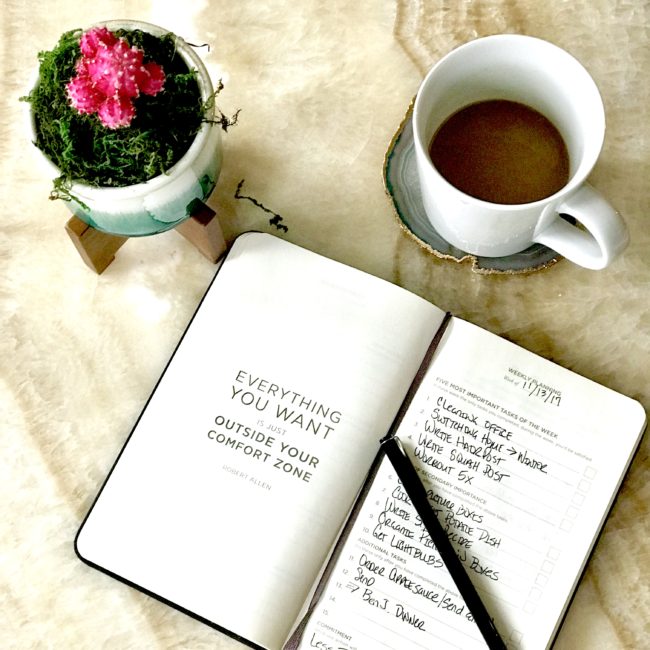 EVERYTHING
YOU WANT
IS JUST
OUTSIDE YOUR
COMFORT ZONE
ROBERT ALLEN
WEEKLY PLANNING
Week of 11/13/19
FIVE MOST IMPORTANT TASKS OF THE WEEK
1. CLEANING OFFICE
2. SWITCHING HOME → WINTER
3. WRITE HAIR POST
WRITE SQUASH POST
WORKOUT 5X
OF SECONDARY IMPORTANCE
6. BOXES
7. POTATE DISH
8. WRITE RECIPE
9. ORGANIZE BOXES
10. GET LIGHTBULBS
ADDITIONAL TASKS
11. ORDER APPLESAUCE/SEND
12. SEND
13. ⇒ BEN J. DINNER
14.
15.
COMMITMENT
LESS